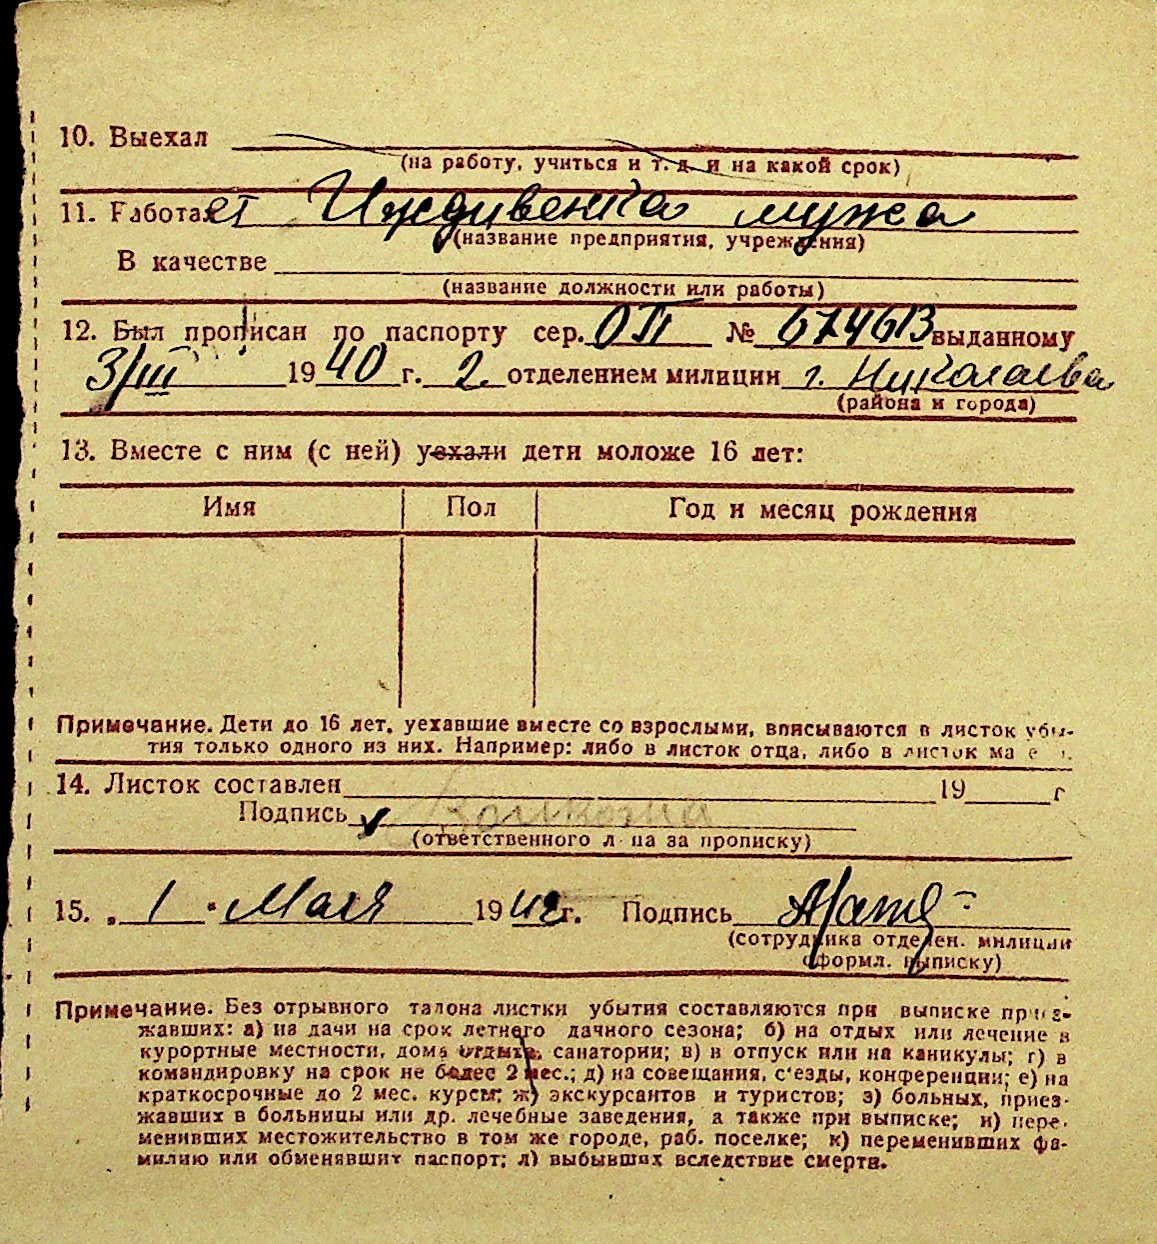 10. Выехал
(на работу, учиться и т. д. и на какой срок)
11. Работает Иждивенка мужа
(название предприятия, учреждения)
В качестве
(название должности или работы)
12. Был прописан по паспорту сер. ОП № 674613 выданному
3/III 1940 г. 2. отделением милиции г. Николаева
(района и города)
13. Вместе с ним (с ней) уехали дети моложе 16 лет:
Имя Пол Год и месяц рождения
Примечание. Дети до 16 лет, уехавшие вместе со взрослыми, вписываются в листок убы-
тия только одного из них. Например: либо в листок отца, либо в листок ма е
14. Листок составлен 19 г
Подпись
(ответственного л ца за прописку)
15. „ 1 " Мая 1942 г. Подпись
(сотрудника отделен. милиции
оформл. выписку)
Примечание. Без отрывного талона листки убытия составляются при выписке приез-
жавших: а) на дачи на срок летнего дачного сезона; б) на отдых или лечение в
курортные местности, дома отдыха, санатории; в) в отпуск или на каникулы; г) в
командировку на срок не более 2 мес.; д) на совещания, с'езды, конференции; е) на
краткосрочные до 2 мес. курсы; ж) экскурсантов и туристов; з) больных, приез-
жавших в больницы или др. лечебные заведения, а также при выписке; и) пере-
менивших местожительство в том же городе, раб. поселке; к) переменивших фа-
милию или обменявших паспорт; л) выбывших вследствие смерти.